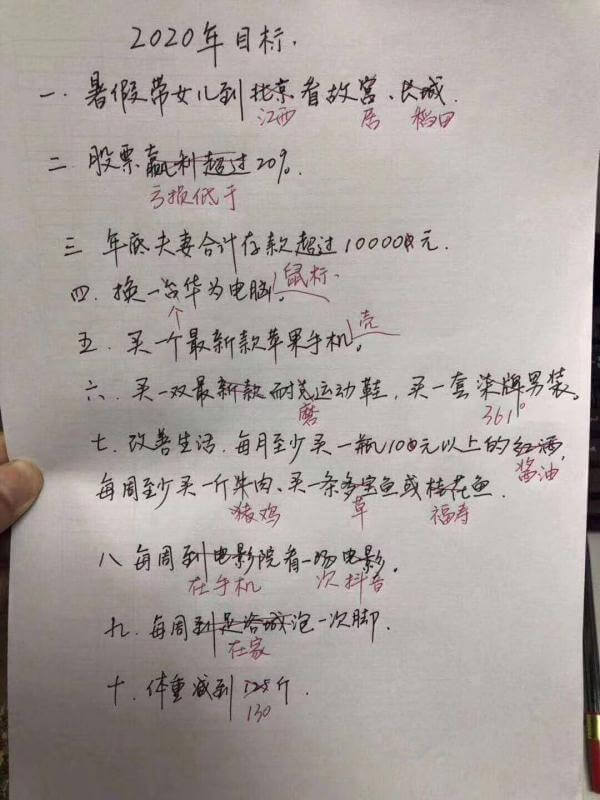 2020年目标.
一.暑假带女儿到北京看故宫、长城.
江西 居 稻田
二.股票赢利超过20%.
亏损低于
三.年底夫妻合计存款超过100000元.
四.换一台华为电脑。鼠标.
五.买一个最新款苹果手机。壳
六.买一双最新款耐克运动鞋,买一套柒牌男装。
磨 361°
七.改善生活.每月至少买一瓶100元以上的红酒,
酱油
每周至少买一斤牛肉、买一条多宝鱼或桂花鱼.
猪鸡 草 福寿
八.每周到电影院看一场电影.
在手机 次抖音
九.每周到足浴城泡一次脚.
在家
十.体重减到125斤.
130